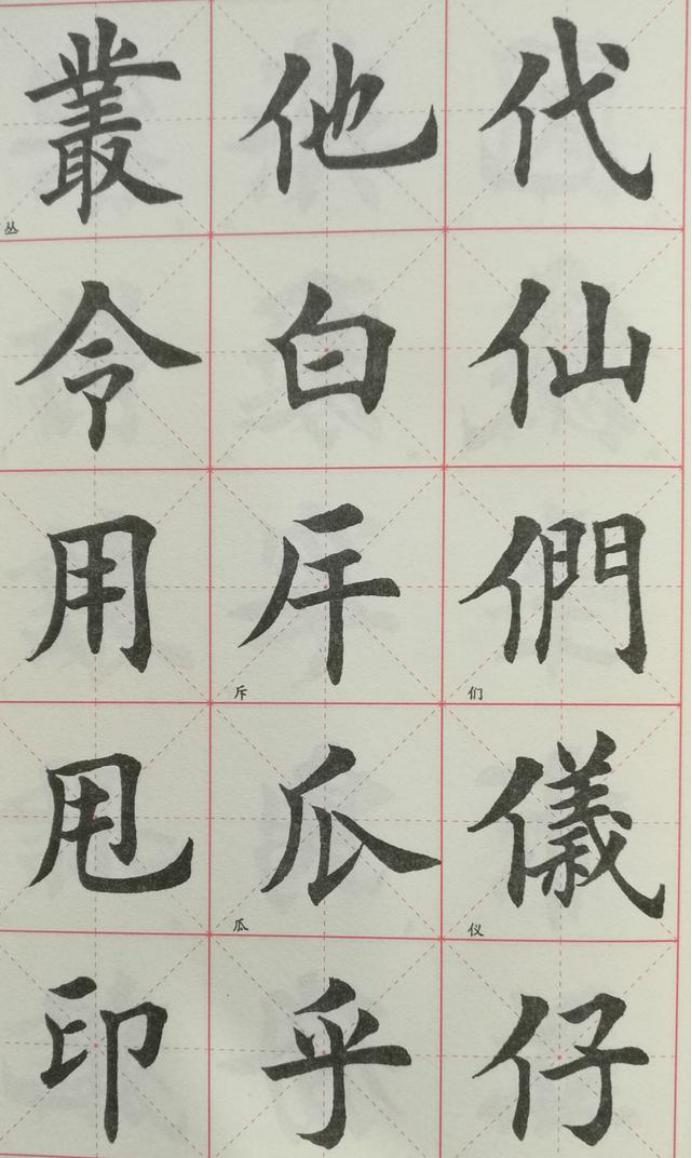 代仙們们儀仪仔
他白斥斥瓜瓜乎
叢丛令用甩印